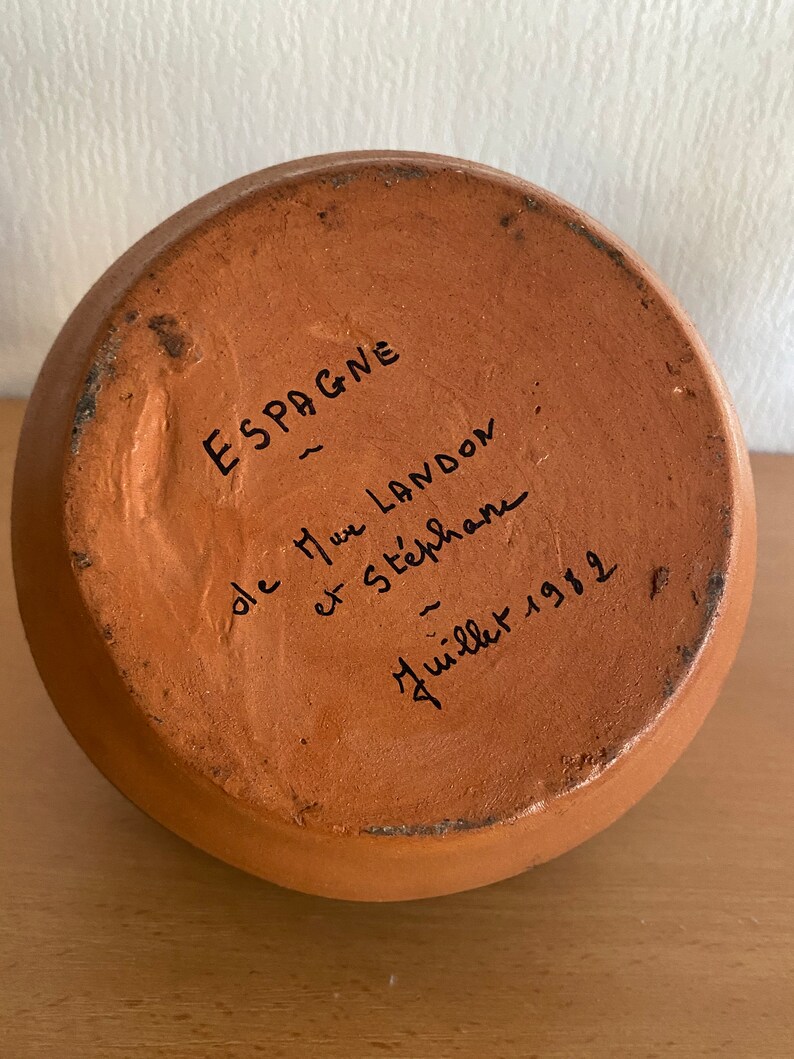 ESPAGNE
~
de Mme LANDON
et Stéphane
~
Juillet 1982